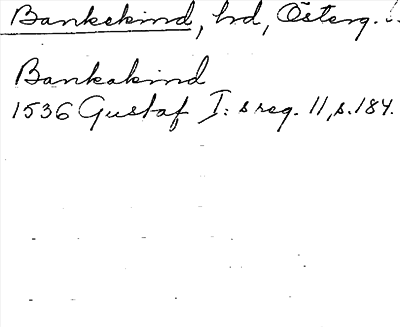 Bankekind, hd, Österg. l.
Bankakind
1536 Gustaf I:s reg. 11, s. 184.